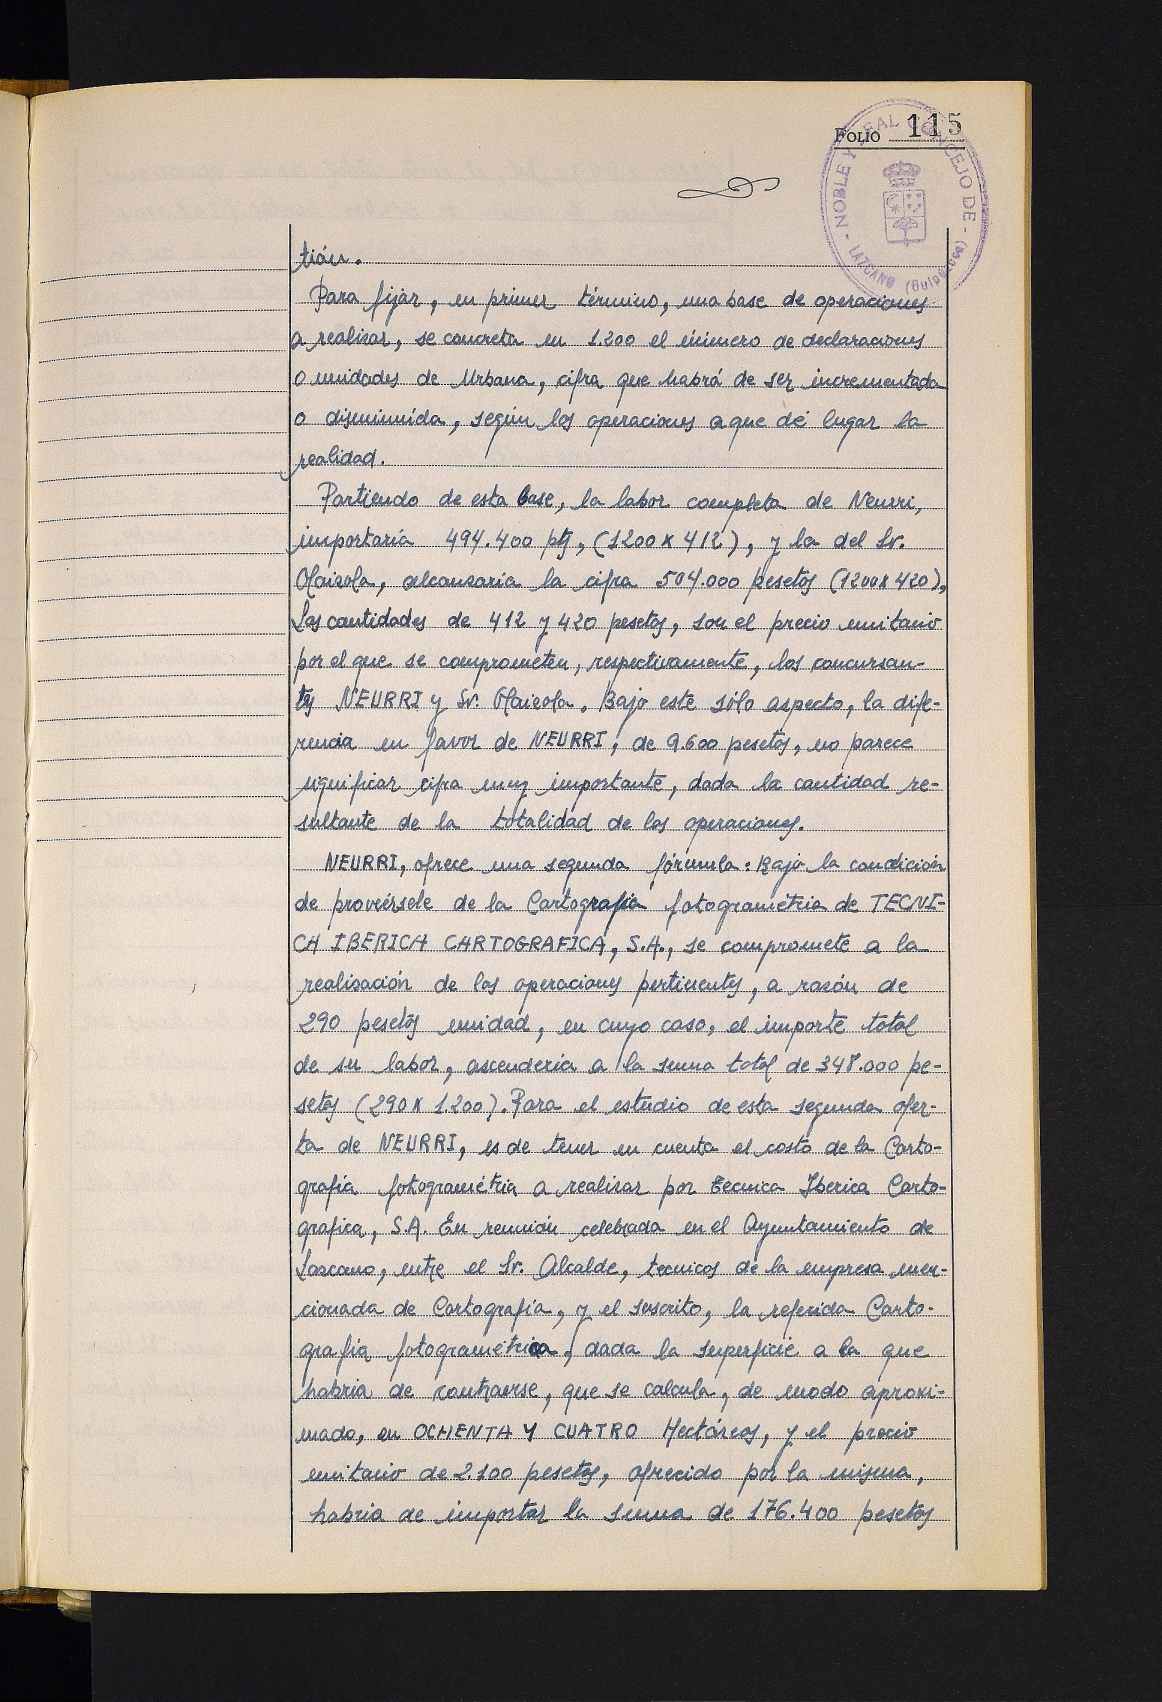 FOLIO 115
NOBLE Y LEAL CONCEJO DE - LAZCANO (Guipúzcoa) -
tión.
Para fijar, en primer término, una base de operaciones
a realizar, se concreta en 1.200 el número de declaraciones
o unidades de Urbana, cifra que habrá de ser incrementada
o disminuída, según las operaciones a que dé lugar la
realidad.
Partiendo de esta base, la labor completa de Neurri,
importaría 494.400 ptas, (1200 x 412), y la del Sr.
Olaizola, alcanzaria la cifra 504.000 pesetas (1200 x 420),
Las cantidades de 412 y 420 pesetas, son el precio unitario
por el que se comprometen, respectivamente, los concursan-
tes NEURRI y Sr. Olaizola. Bajo este sólo aspecto, la dife-
rencia en favor de NEURRI, de 9.600 pesetas, no parece
significar cifra muy importante, dada la cantidad re-
sultante de la totalidad de las operaciones.
NEURRI, ofrece una segunda fórmula: Bajo la condición
de proveérsele de la Cartografía fotogramétrica de TECNI-
CA IBERICA CARTOGRAFICA, S.A., se compromete a la
realización de las operaciones pertinentes, a razón de
290 pesetas unidad, en cuyo caso, el importe total
de su labor, ascendería a la suma total de 348.000 pe-
setas (290 x 1.200). Para el estudio de esta segunda ofer-
ta de NEURRI, es de tener en cuenta el costo de la Carto-
grafía fotogramétrica a realizar por Tecnica Iberica Carto-
grafica, S.A. En reunión celebrada en el Ayuntamiento de
Lazcano, entre el Sr. Alcalde, tecnicos de la empresa men-
cionada de Cartografía, y el suscrito, la referida Carto-
grafía fotogramétrica, dada la superficie a la que
habria de contraerse, que se calcula, de modo aproxi-
mado, en OCHENTA Y CUATRO Hectáreas, y el precio
unitario de 2.100 pesetas, ofrecido por la misma,
habria de importar la suma de 176.400 pesetas